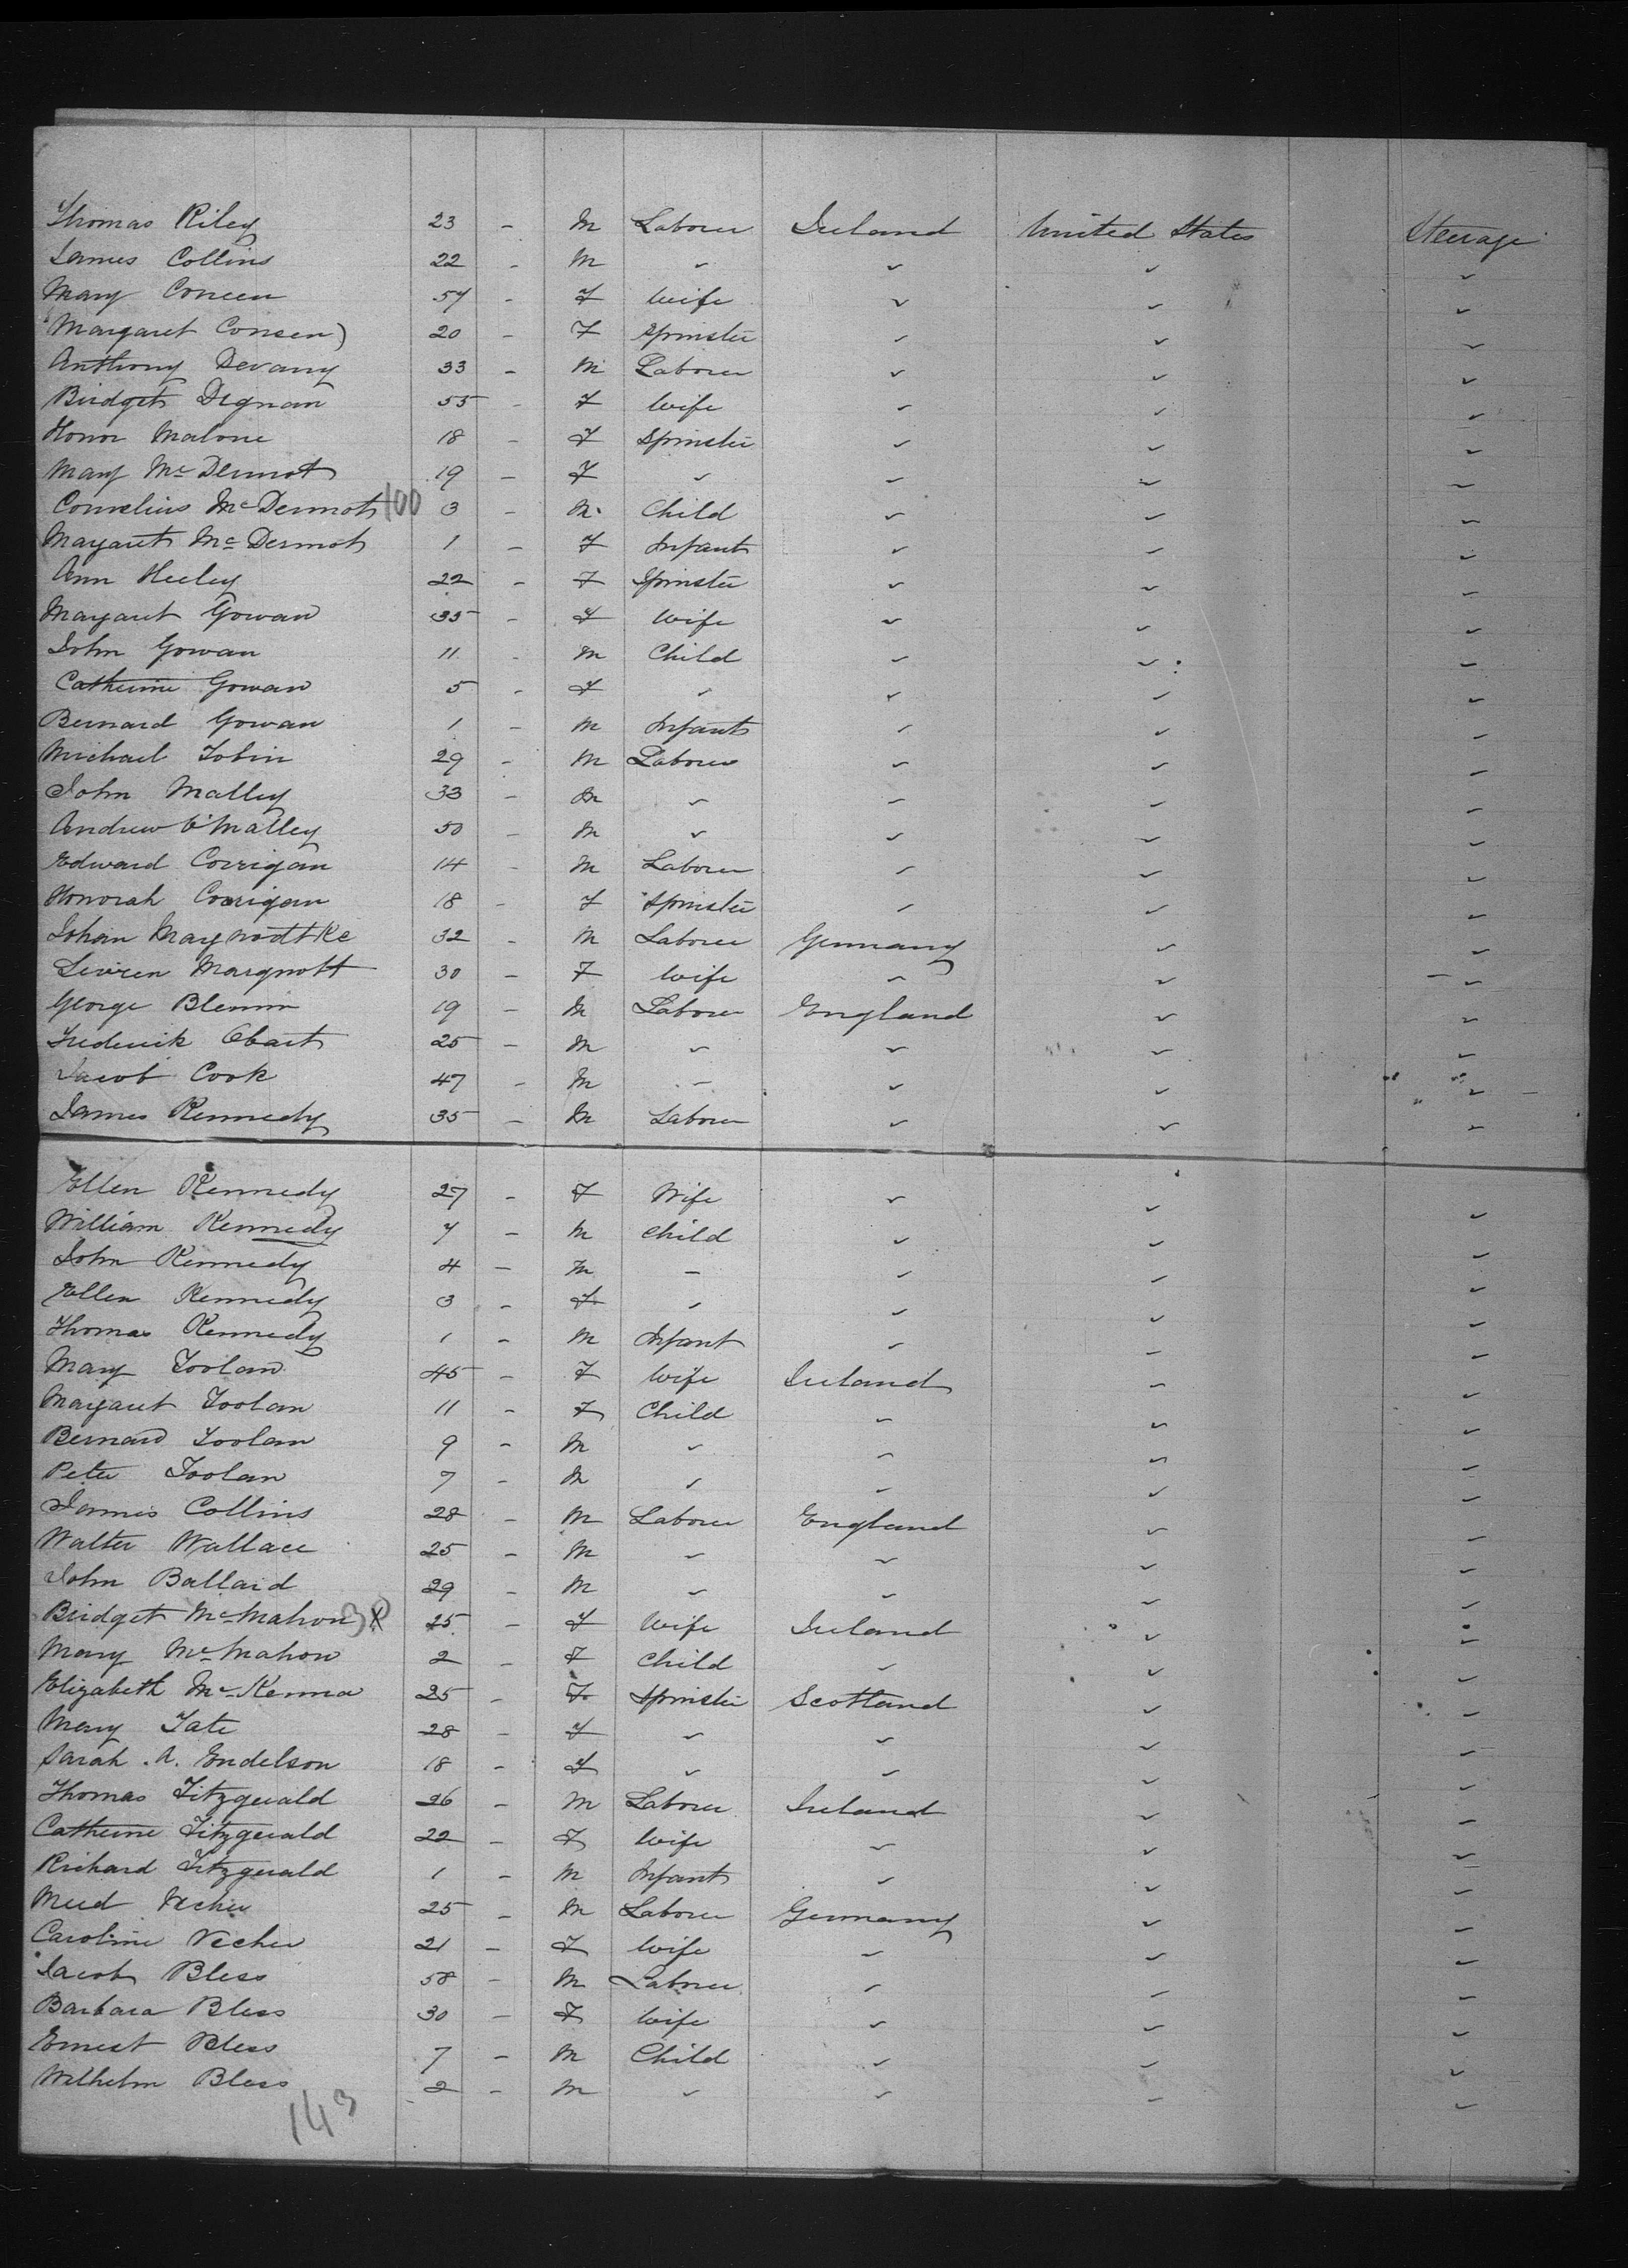 Thomas Riley 23 - M Laborer Ireland United States Steerage
James Collins 22 - M " " " "
Mary Concen 57 - F Wife " " "
Margaret Concen) 20 - F Spinster " " "
Anthony Devany 33 - M Laborer " " "
Bridget Dignan 55 - F Wife " " "
Honor Malone 18 - F Spinster " " "
Mary McDermot 19 - F " " " "
Cornelius McDermot 100 3 - M Child " " "
Margaret McDermot 1 - F Infant " " "
Ann Heeley 22 - F Spinster " " "
Margaret Gowan 35 - F Wife " " "
John Gowan 11 - M Child " " "
Catherine Gowan 5 - F " " " "
Bernard Gowan 1 - M Infant " " "
Michael Tobin 29 - M Laborer " " "
John Malley 33 - M " " " "
Andrew O'Malley 50 - M " " " "
Edward Corrigan 14 - M Laborer " " "
Honorah Corrigan 18 - F Spinster " " "
Johan 32 - M Laborer Germany " "
30 - F Wife " " "
George Blemin 19 - M Laborer England " "
Frederick Obart 25 - M " " " "
Jacob Cook 47 - M " " " "
James Kennedy 35 - M Laborer " " "
Ellen Kennedy 27 - F Wife " " "
William Kennedy 7 - M Child " " "
John Kennedy 4 - M " " " "
Ellen Kennedy 3 - F " " " "
Thomas Kennedy 1 - M Infant " " "
Mary Toolan 45 - F Wife Ireland " "
Margaret Toolan 11 - F Child " " "
Bernard Toolan 9 - M " " " "
Peter Toolan 7 - M " " " "
James Collins 28 - M Laborer England " "
Walter Wallace 25 - M " " " "
John Ballard 29 - M " " " "
Bridget McMahon X 25 - F Wife Ireland " "
Mary McMahon 2 - F Child " " "
Elizabeth McKenna 25 - F Spinster Scotland " "
Mary Tate 28 - F " " " "
Sarah A. Endelson 18 - F " " " "
Thomas Fitzgerald 26 - M Laborer Ireland " "
Catherine Fitzgerald 22 - F Wife " " "
Richard Fitzgerald 1 - M Infant " " "
Vecher 25 - M Laborer Germany " "
Caroline Vecher 21 - F Wife " " "
Jacob Bless 58 - M Laborer " " "
Barbara Bless 30 - F Wife " " "
Ernest Bless 7 - M Child " " "
Wilhelm Bless 2 - M " " " "
143